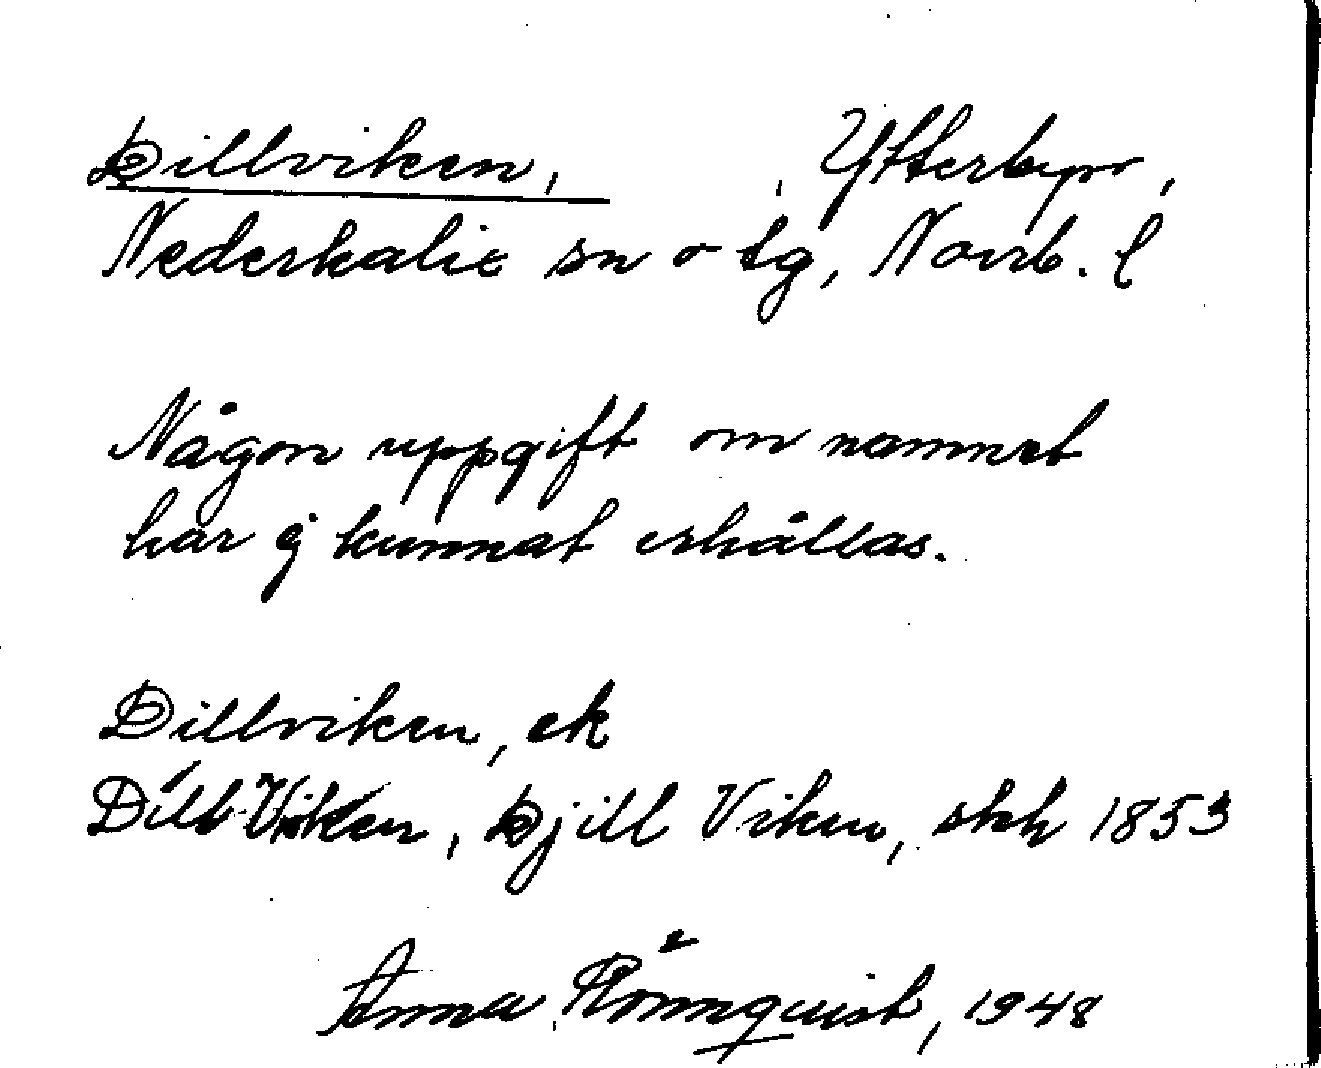 Dillviken, Ytterbyn,
Nederkalix sn o tg, Norrb. l
Någon uppgift om namnet
har ej kunnat erhållas.
Dillviken, ek
Dill Viken, Djill Viken, skh 1853
Anna Rönnquist, 1948